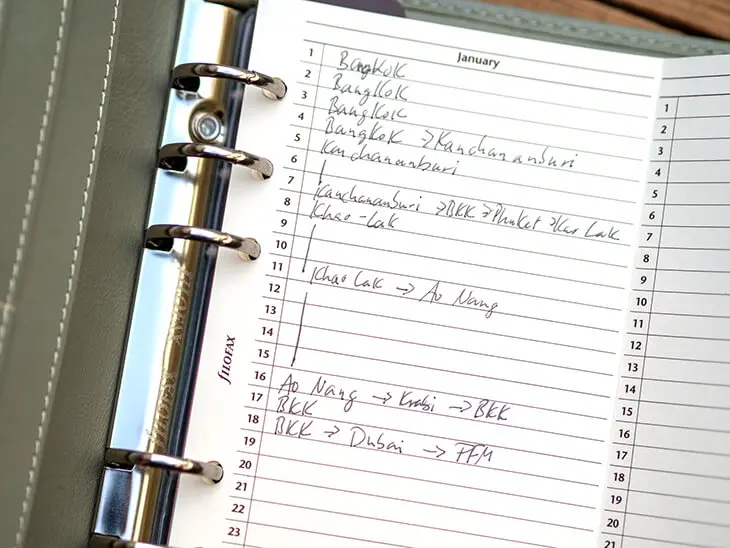 January
1 Bangkok
2 Bangkok
3 Bangkok
4 Bangkok → Kanchananburi
5 Kanchananburi
6
7 Kanchananburi → BKK → Phuket → Kao Lak
8 Khao-Lak
9
10
11 Khao Lak → Ao Nang
12
13
14
15
16 Ao Nang → Krabi → BKK
17 BKK
18 BKK → Dubai → FFM
19
20
21
22
23
fILOFAX
1
2
3
4
5
6
7
8
9
10
11
12
13
14
15
16
17
18
19
20
21